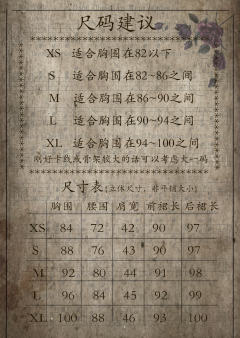 尺码建议
XS 适合胸围在82以下
S 适合胸围在82~86之间
M 适合胸围在86~90之间
L 适合胸围在90~94之间
XL 适合胸围在94~100之间
刚好卡线或骨架较大的话可以考虑大一码
尺寸表(立体尺寸，非平铺大小)
胸围 腰围 肩宽 前裙长 后裙长
XS 84 72 42 90 97
S 88 76 43 90 97
M 92 80 44 91 98
L 96 84 45 92 99
XL 100 88 46 93 100